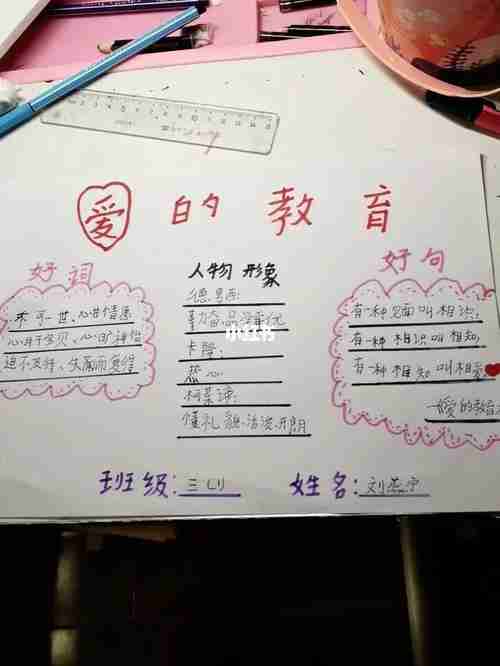 爱的教育
好词
不可一世、心甘情愿
心肝宝贝、心旷神怡
迫不及待、失而复得
人物形象
德罗西:
勤奋品学兼优
卡隆:
热心
柯莱谛:
懂礼貌、活泼、开朗
好句
有一种见面叫相识;
有一种相识叫相知
有一种相知叫相爱
—《爱的教育
班级:三(1)
姓名:刘蕊宁
小红书